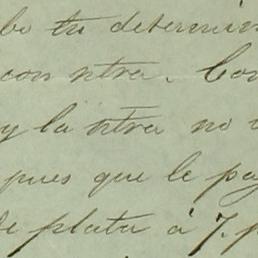 be tu determin
con ntra. Con
y la ntra no
pues que le pa
de plata á 7. p